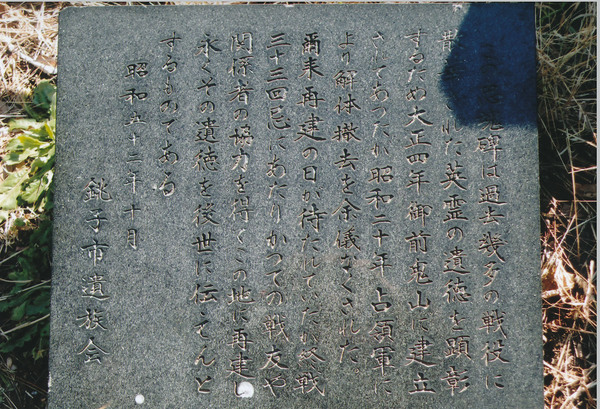 碑は過去幾多の戦役に
れた英霊の遺徳を顕彰
するため大正四年御前鬼山に建立
されてあったが昭和二十年占領軍に
より解体撤去を余儀なくされた
爾来再建の日が待たれて たが終戦
三十三回忌にあたりかつての戦友や
関係者の協力を得てこの地に再建し
永くその遺徳を後世に伝えんと
するものである
昭和五十二年十月
銚子市遺族会